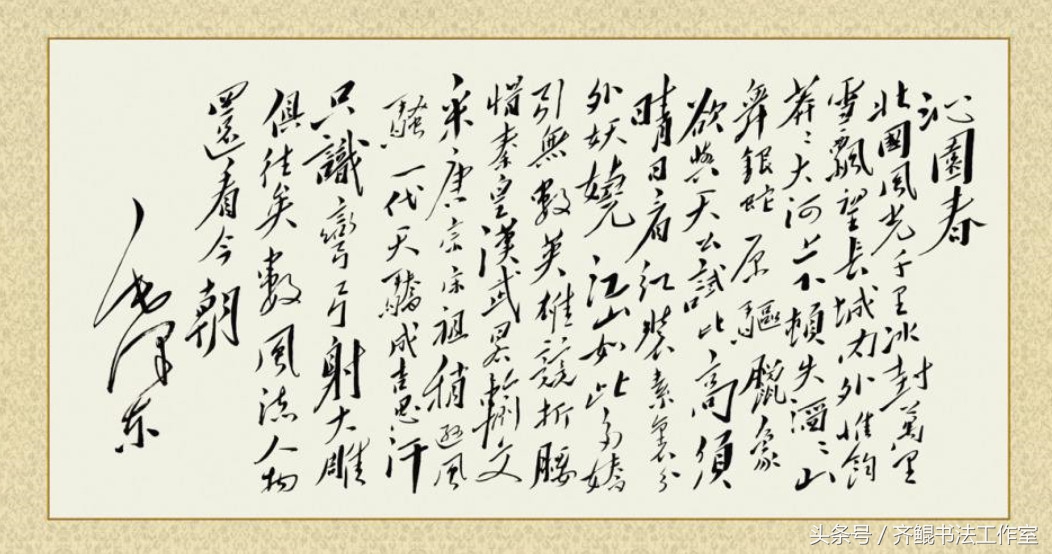 沁園春
北國風光千里冰封萬里
雪飄望長城内外惟餘
莽々大河上下頓失滔々山
舞銀蛇原驅臘象
欲與天公試比高須
晴日看紅裝素裹分
外妖嬈江山如此多嬌
引無數英雄競折腰
惜秦皇漢武略輸文
采唐宗宋祖稍遜風
騷一代天驕成吉思汗
只識彎弓射大雕
俱往矣數風流人物
還看今朝
毛澤東
头条号 / 齐鲲书法工作室